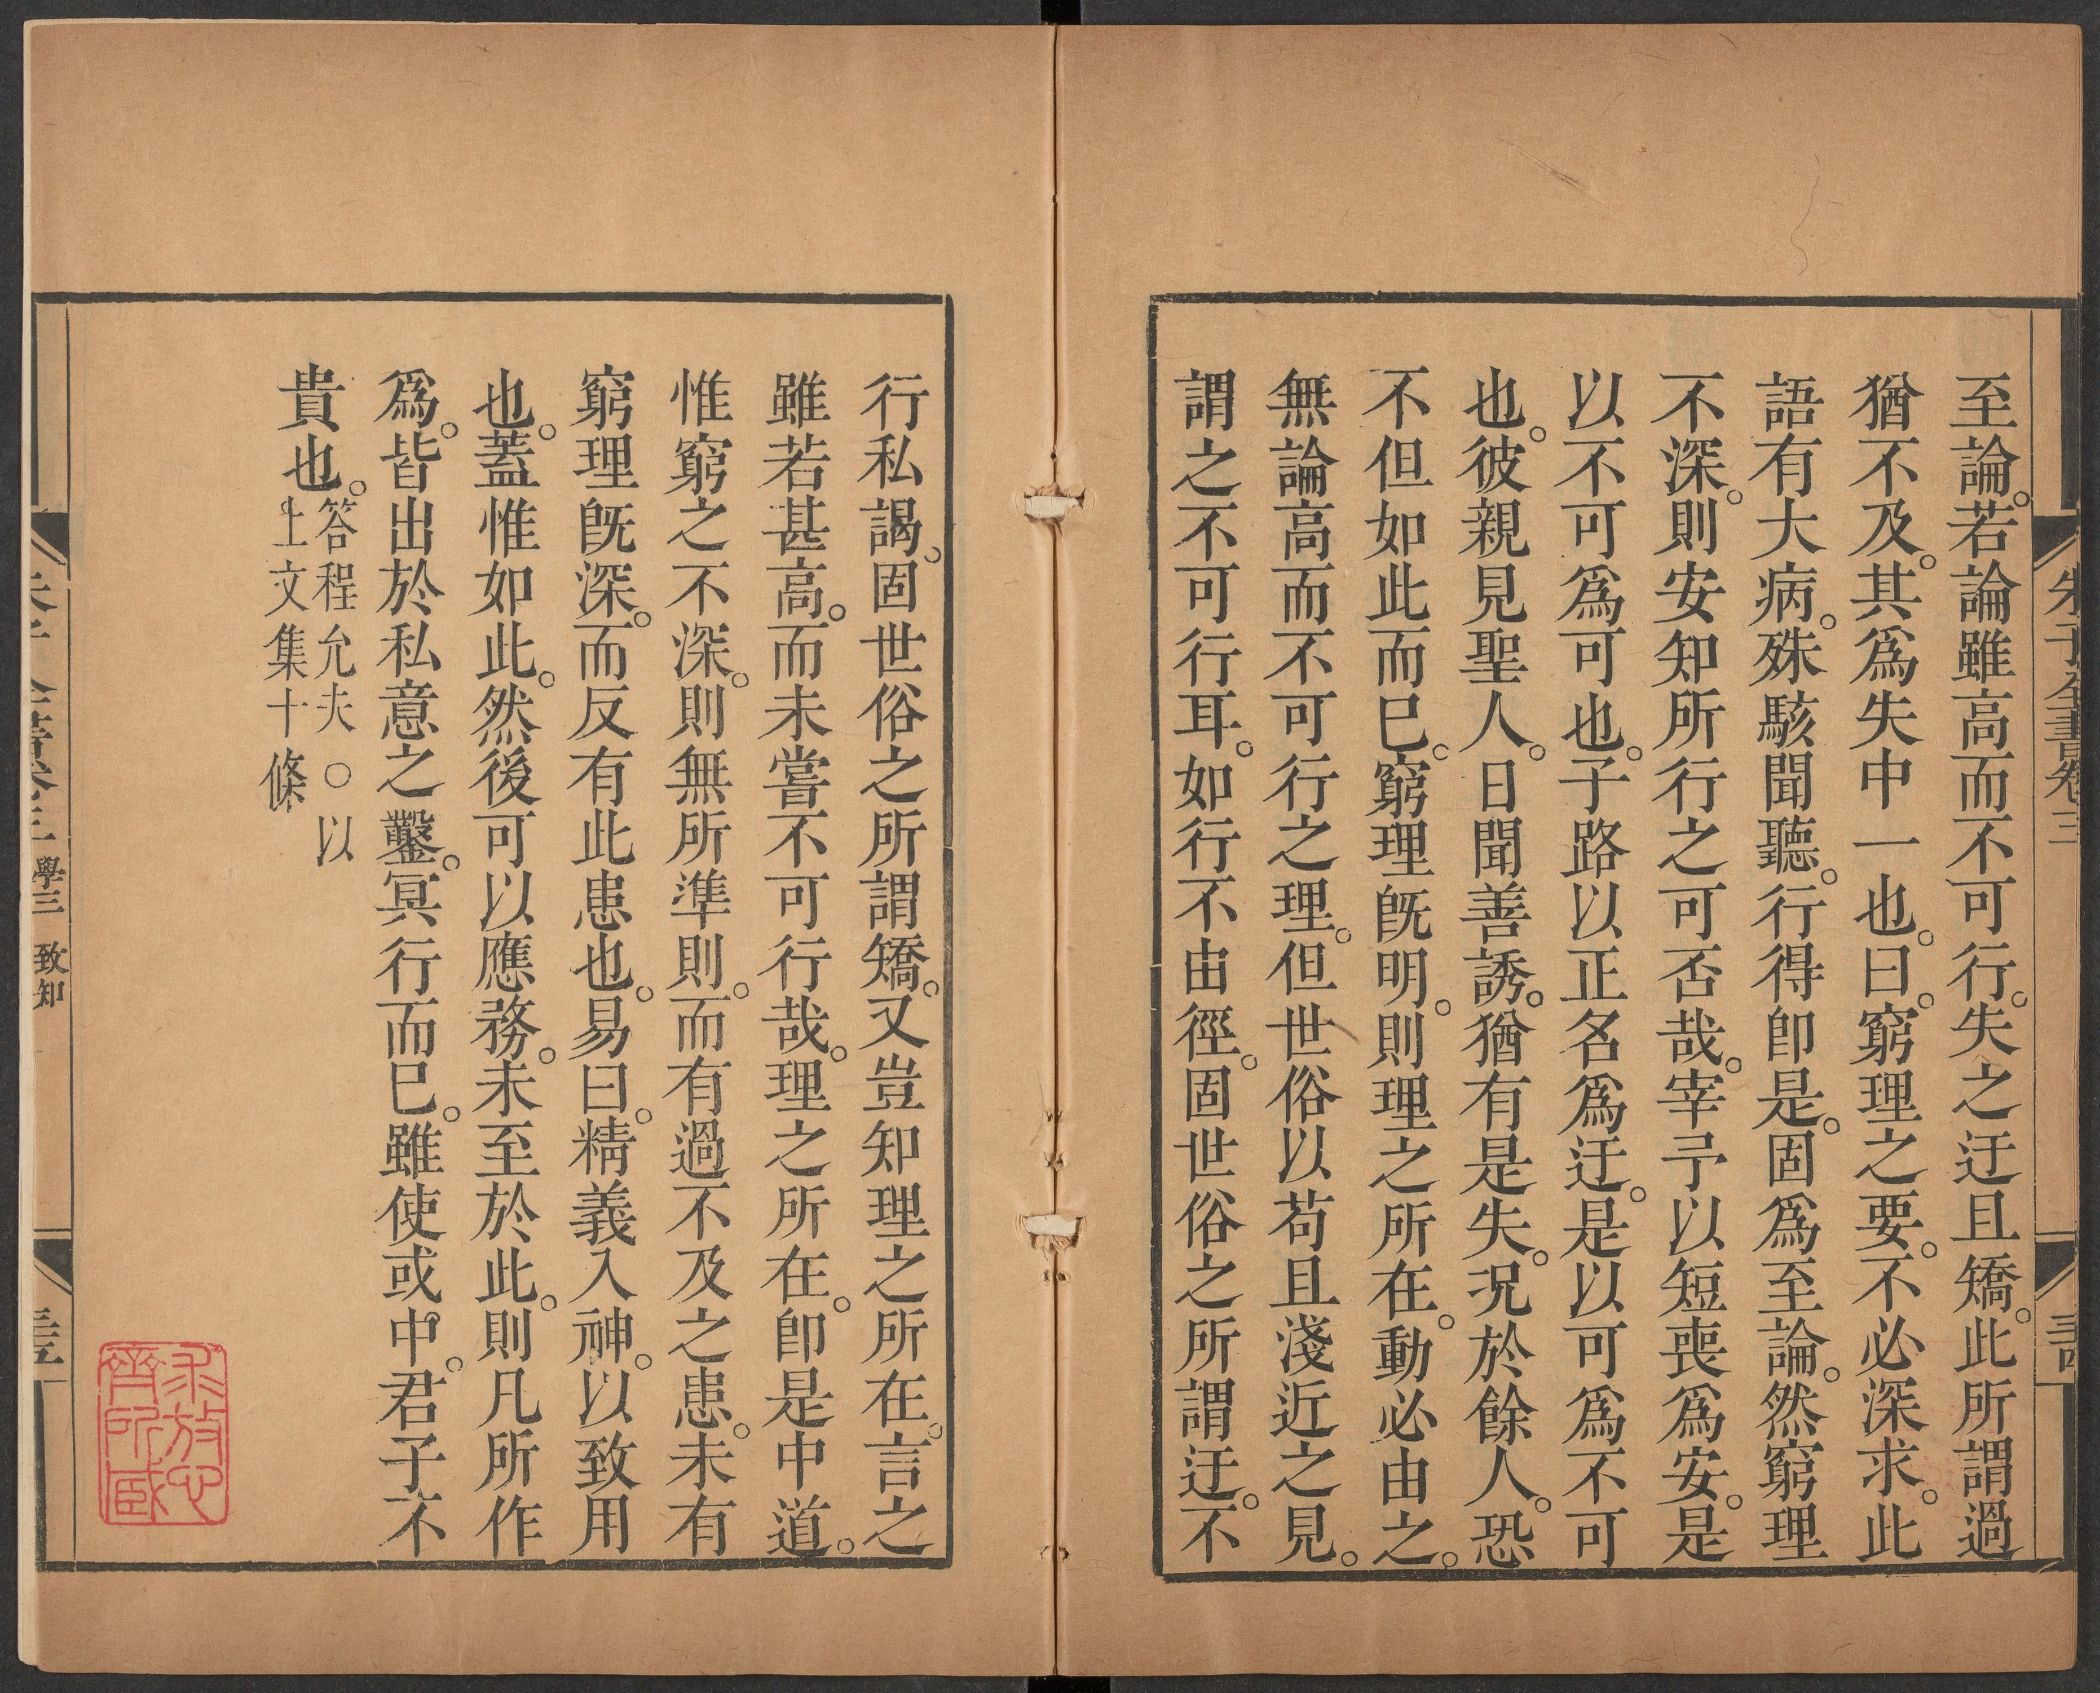 朱子全書卷三
至論。若論雖高而不可行。失之迂且矯。此所謂過
猶不及。其爲失中一也。曰。窮理之要。不必深求。此
語有大病。殊駭聞聽。行得卽是。固爲至論。然窮理
不深。則安知所行之可否哉。宰予以短喪爲安。是
以不可爲可也。子路以正名爲迂。是以可爲不可
也。彼親見聖人。日聞善誘。猶有是失。況於餘人。恐
不但如此而巳。窮理旣明。則理之所在。動必由之。
無論高而不可行之理。但世俗以苟且淺近之見。
謂之不可行耳。如行不由徑。固世俗之所謂迂。不
行私謁。固世俗之所謂矯。又豈知理之所在。言之
雖若甚高。而未嘗不可行哉。理之所在。卽是中道。
惟窮之不深。則無所準則。而有過不及之患。未有
窮理旣深。而反有此患也。易曰。精義入神。以致用
也。蓋惟如此。然後可以應務。未至於此。則凡所作
爲。皆出於私意之鑿。冥行而巳。雖使或中。君子不
貴也。答程允夫○以
上文集十條
學三 致知
求放心
齋所臧